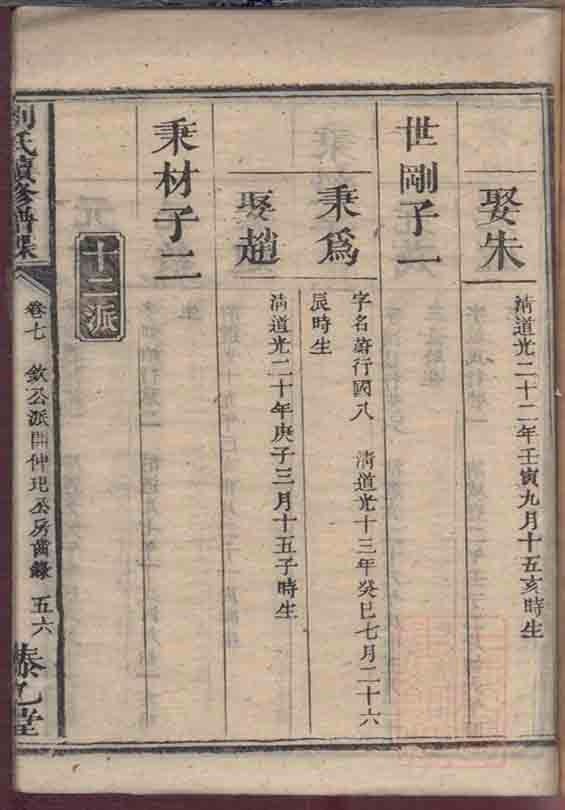 娶朱
清道光二十二年壬寅九月十五亥時生
世剛子一
秉爲
字名蔚行國八 清道光十三年癸巳七月二十六
辰時生
娶趙
清道光二十年庚子三月十五子時生
秉材子二
十二派
劉氏續修譜牒
卷七 欽公派開仲玘丞房齒錄 五六
泰乙堂